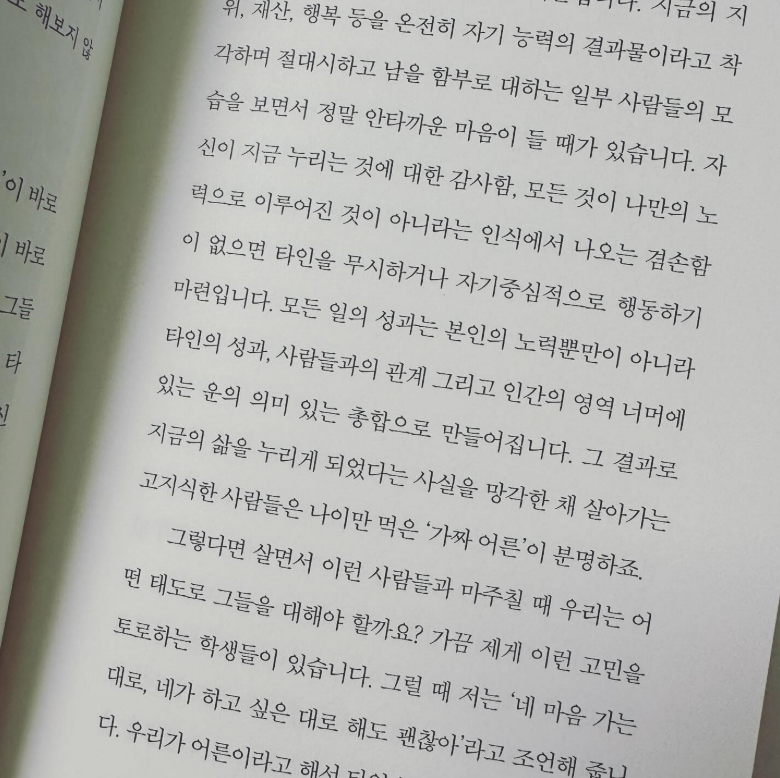 해보지 않
'이 바로
바로
그들
타
지금의 지
위, 재산, 행복 등을 온전히 자기 능력의 결과물이라고 착
각하며 절대시하고 남을 함부로 대하는 일부 사람들의 모
습을 보면서 정말 안타까운 마음이 들 때가 있습니다. 자
신이 지금 누리는 것에 대한 감사함, 모든 것이 나만의 노
력으로 이루어진 것이 아니라는 인식에서 나오는 겸손함
이 없으면 타인을 무시하거나 자기중심적으로 행동하기
마련입니다. 모든 일의 성과는 본인의 노력뿐만이 아니라
타인의 성과, 사람들과의 관계 그리고 인간의 영역 너머에
있는 운의 의미 있는 총합으로 만들어집니다. 그 결과로
지금의 삶을 누리게 되었다는 사실을 망각한 채 살아가는
고지식한 사람들은 나이만 먹은 '가짜 어른'이 분명하죠.
그렇다면 살면서 이런 사람들과 마주칠 때 우리는 어
떤 태도로 그들을 대해야 할까요? 가끔 제게 이런 고민을
토로하는 학생들이 있습니다. 그럴 때 저는 '네 마음 가는
대로, 네가 하고 싶은 대로 해도 괜찮아'라고 조언해 줍니
다. 우리가 어른이라고 해서